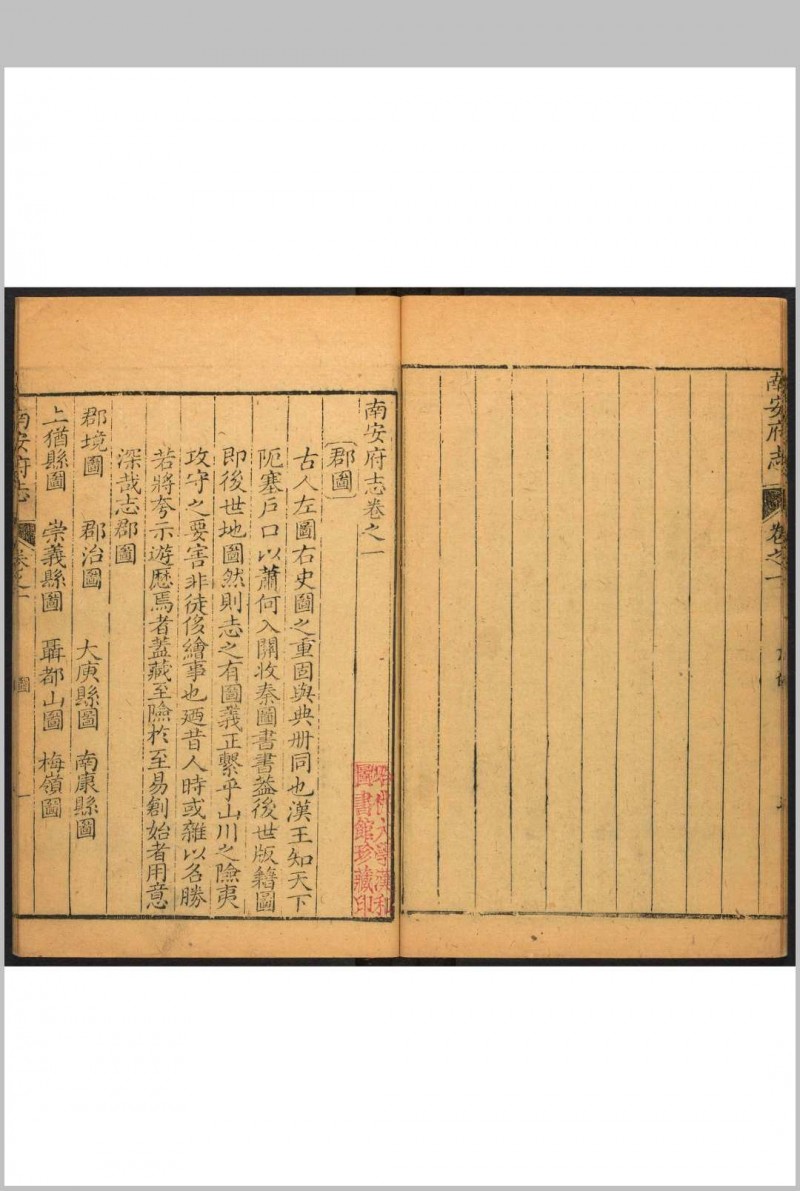 南安府志
卷之一
南安府志卷之一
郡圖
古人左圖右史圖之重固與典册同也漢王知天下
阨塞戶口以蕭何入關收秦圖書書蓋後世版籍圖
即後世地圖然則志之有圖義正繫乎山川之險夷
攻守之要害非徒侈繪事也廼昔人時或雜以名勝
若將夸示遊歷焉者蓋藏至險於至易創始者用意
深哉志郡圖
郡境圖 郡治圖 大庾縣圖 南康縣圖
上猶縣圖 崇義縣圖 聶都山圖 梅嶺圖
哈佛大學漢和
圖書館珍藏印
南安府志
卷之一
圖
一